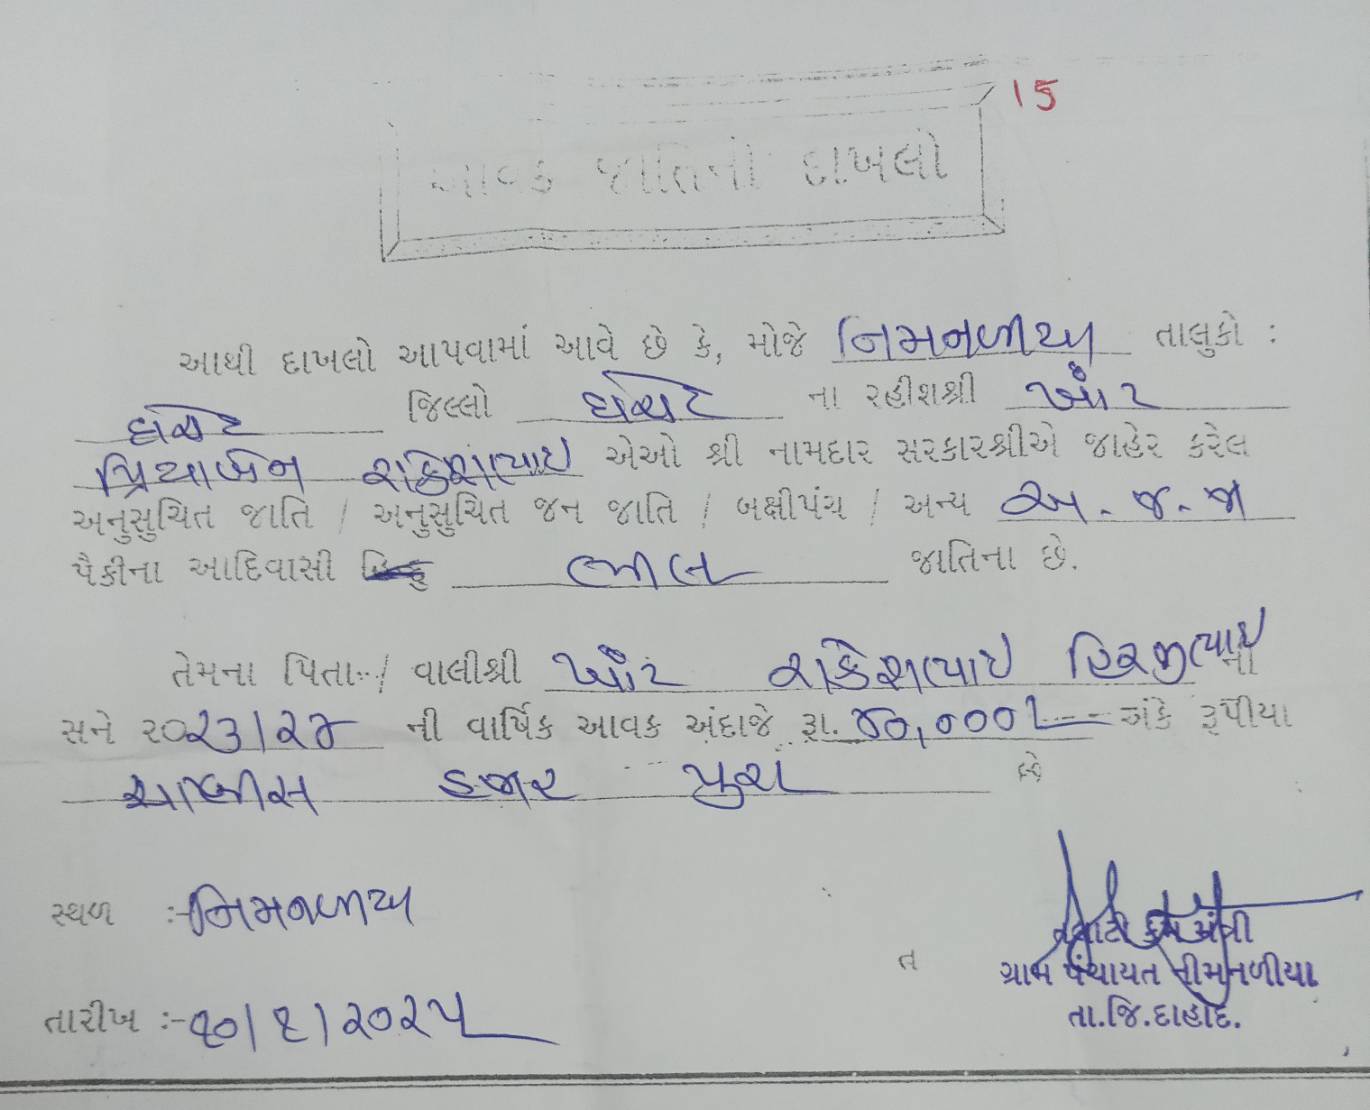 15
આવક જાતિનો દાખલો
આથી દાખલો આપવામાં આવે છે કે, મોજે નિમનળીયા તાલુકો :
દાહોદ જિલ્લો દાહોદ ના રહીશશ્રી ખાંટ
પ્રિયાબેન રાકેશભાઇ એઓ શ્રી નામદાર સરકારશ્રીએ જાહેર કરેલ
અનુસુચિત જાતિ / અનુસુચિત જન જાતિ / બક્ષીપંચ / અન્ય અ.જ.જા
પૈકીના આદિવાસી હિન્દુ ભીલ જાતિના છે.
તેમના પિતા / વાલીશ્રી ખાંટ રાકેશભાઇ હિરજીભાઇ ની
સને ૨૦૨૩/૨૪ ની વાર્ષિક આવક અંદાજે રૂા. ૪૦,૦૦૦/- અંકે રૂપીયા
ચાલીસ હજાર પુરા છે
સ્થળ :- નિમનળીયા
તલાટી કમ મંત્રી
ત ગ્રામ પંચાયત નીમનળીયા
તારીખ :- ૧૦/૧/૨૦૨૫ તા.જિ.દાહોદ.